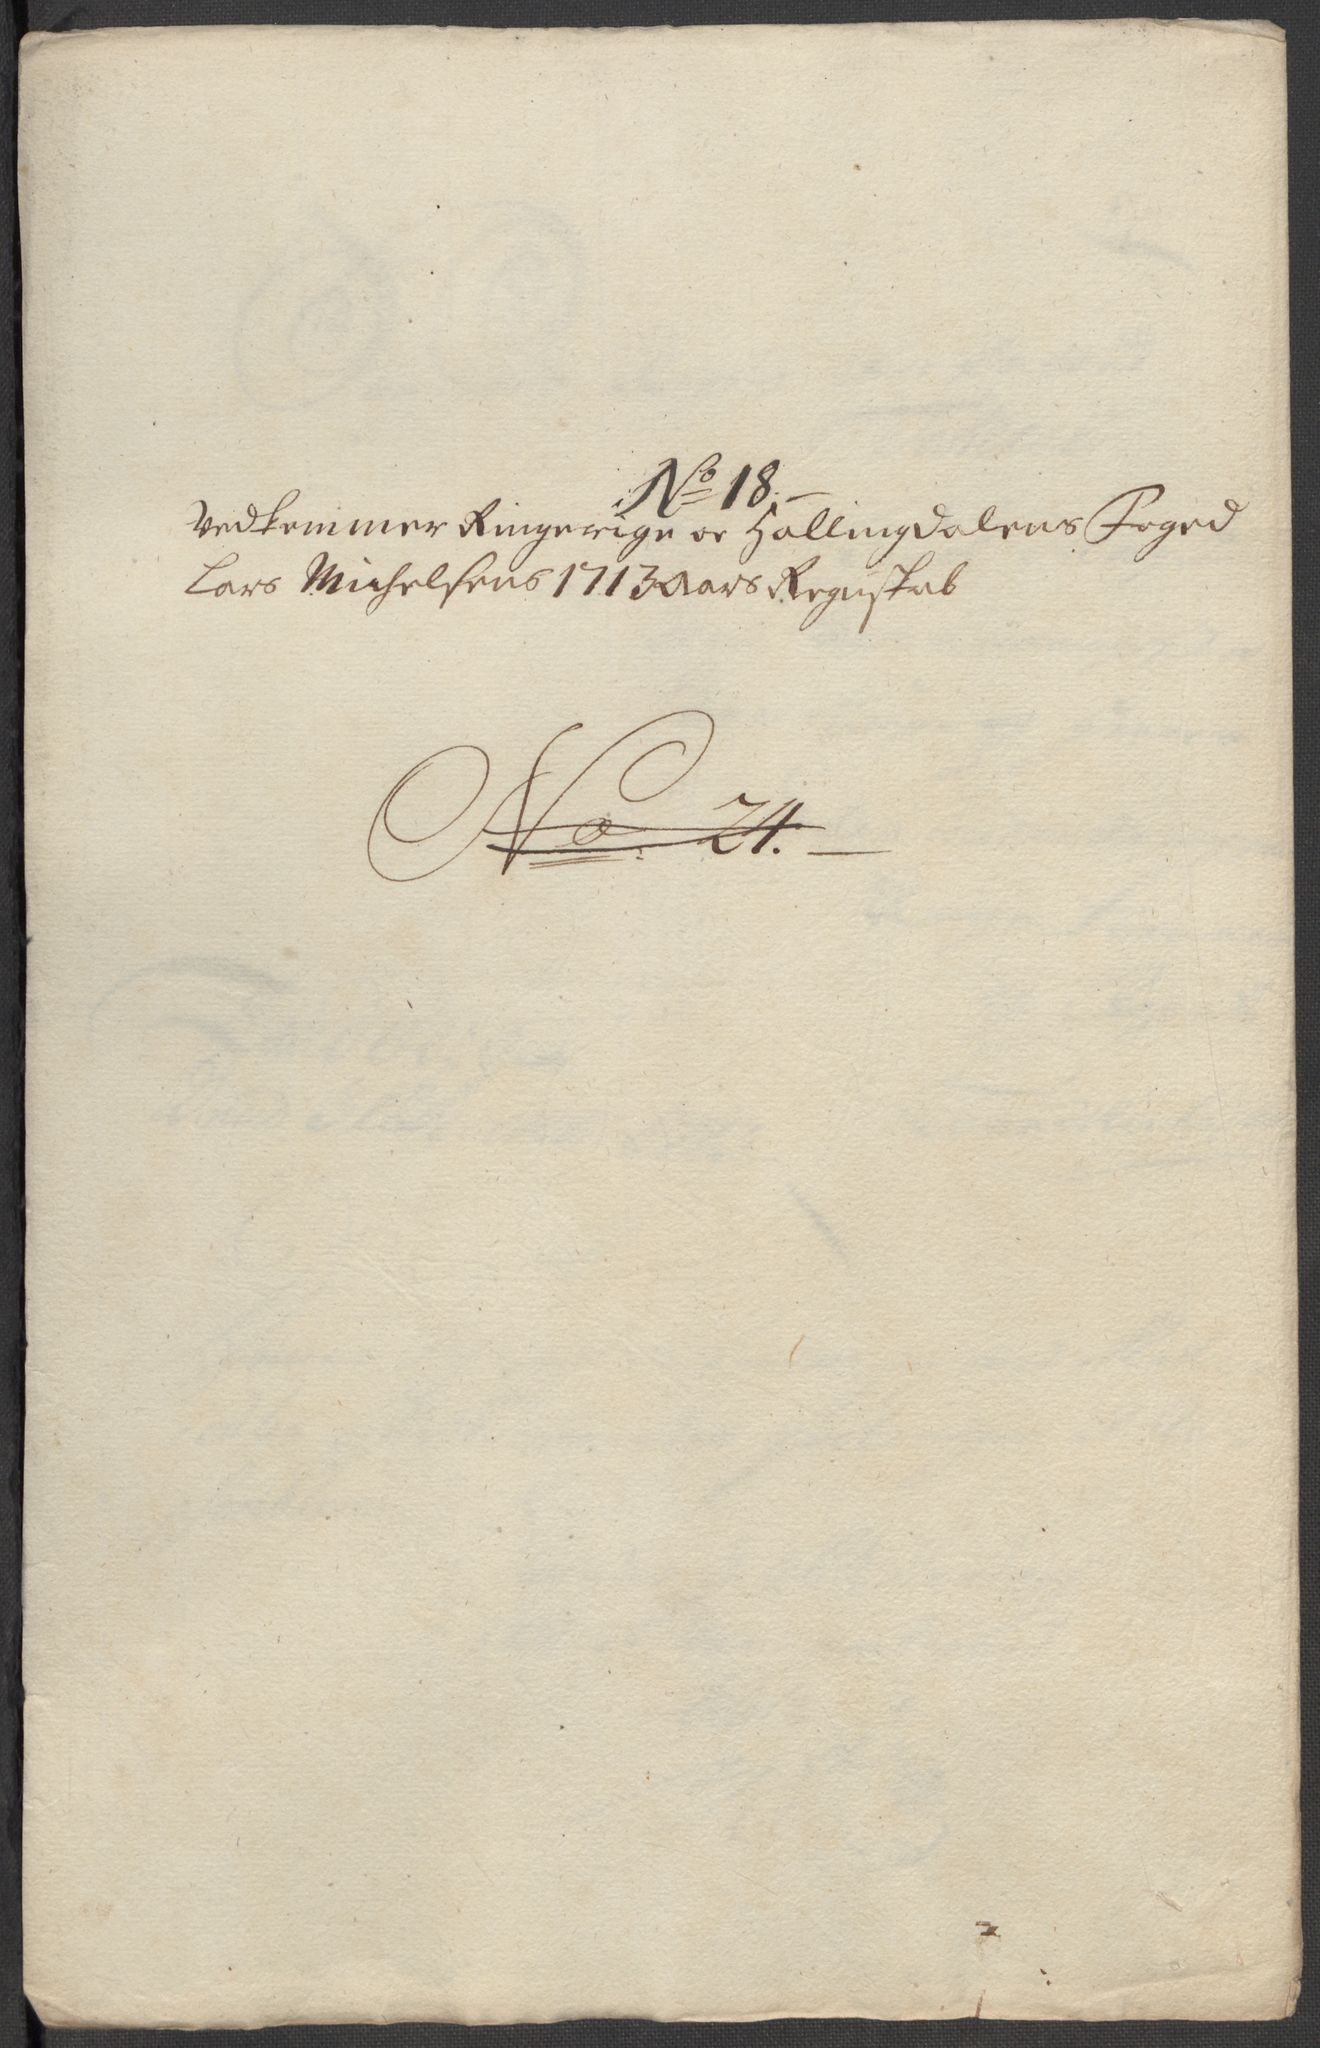 No 18.
Vedkommer Ringerige oc Hallingdalens Foged
Lars Michelsens 1713 Aars Regnskab
No. 24.